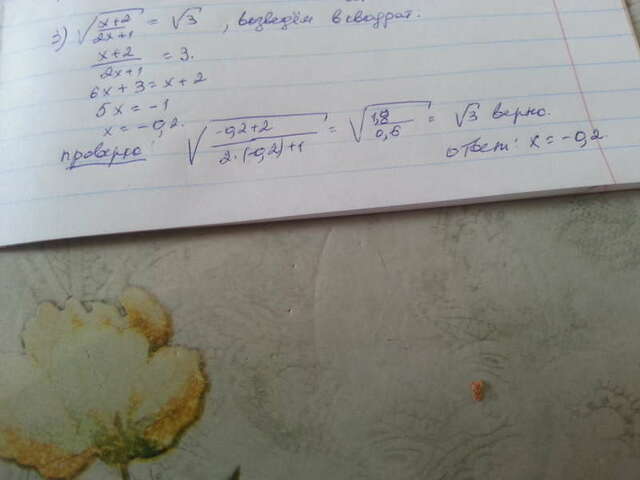 3) √(x+2)/(2x+1) = √3 , возведём в квадрат.
(x+2)/(2x+1) = 3.
6x + 3 = x + 2
5x = -1
x = -0,2.
проверка: √(-0,2+2)/(2·(-0,2)+1) = √1,8/0,6 = √3 верно.
ответ: x = -0,2